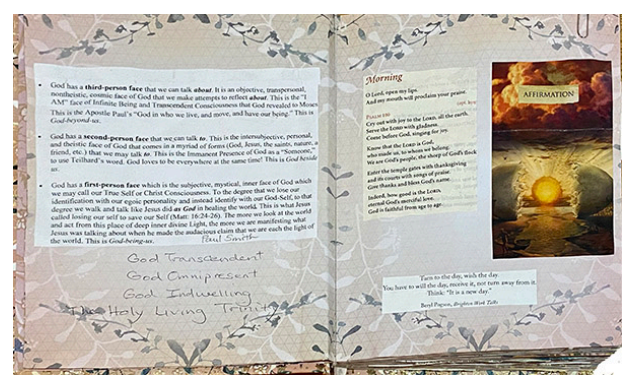 God has a third-person face that we can talk about. It is an objective, transpersonal,
nontheistic, cosmic face of God that we make attempts to reflect about. This is the "I
AM" face of Infinite Being and Transcendent Consciousness that God revealed to Moses
This is the Apostle Paul's "God in who we live, and move, and have our being." This is
God-beyond-us.
God has a second-person face that we can talk to. This is the intersubjective, personal,
and theistic face of God that comes in a myriad of forms (God, Jesus, the saints, nature, a
friend, etc.) that we may talk to. This is the Immanent Presence of God as a "Someone,"
to use Teilhard's word. God loves to be everywhere at the same time! This is God beside
us.
God has a first-person face which is the subjective, mystical, inner face of God which
we may call our True Self or Christ Consciousness. To the degree that we lose our
identification with our egoic personality and instead identify with our God-Self, to that
degree we walk and talk like Jesus did as God in healing the world. This is what Jesus
called losing our self to save our Self (Matt: 16:24-26). The more we look at the world
and act from this place of deep inner divine Light, the more we are manifesting what
Jesus was talking about when he made the audacious claim that we are each the light of
the world. This is God-being-us.
Paul Smith
God Transcendent
God Omnipresent
God Indwelling
The Holy Living Trinity
Morning
O Lord, open my lips.
And my mouth will proclaim your praise.
PSALM 100
Cry out with joy to the LORD, all the earth.
Serve the LORD with gladness.
Come before God, singing for joy.
Know that the LORD is God,
who made us, to whom we belong.
We are God's people, the sheep of God's flock
Enter the temple gates with thanksgiving
and its courts with songs of praise.
Give thanks and bless God's name.
Indeed, how good is the LORD,
eternal God's merciful love.
God is faithful from age to age.
AFFIRMATION
Turn to the day, wish the day.
You have to will the day, receive it, not turn away from it.
Think: "It is a new day."
Beryl Pogson, Brighton Work Talks